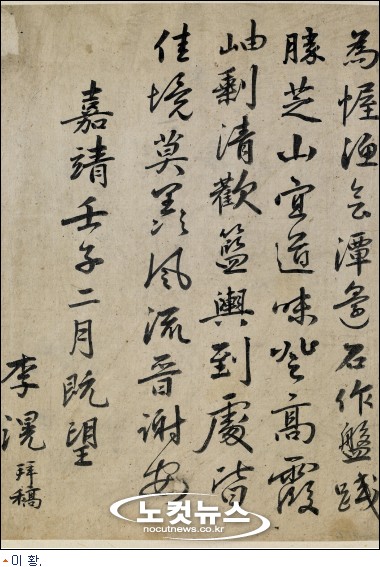 為幄會潭邊石作盤踐
勝芝山宜道味登高霞
岫剩清歡籃輿到處皆
佳境莫羨風流晉謝安
嘉靖壬子二月旣望
李滉拜稿
노컷뉴스
nocutnews.co.kr
이 황.